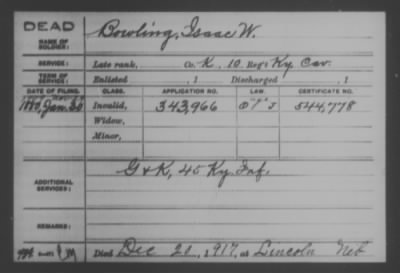 DEAD
NAME OF SOLDIER: Bowling, Isaac W.
SERVICE: Late rank, Co. K, 10 Reg't Ky Cav.
TERM OF SERVICE: Enlisted , 1 Discharged , 1
DATE OF FILING. CLASS. APPLICATION NO. LAW. CERTIFICATE NO.
1880, Jan. 30 Invalid, 343,966 544,778
Widow,
Minor,
ADDITIONAL SERVICES: G & K, 45 Ky. Inf.
REMARKS:
Died Dec 20, 1917, at Lincoln Neb